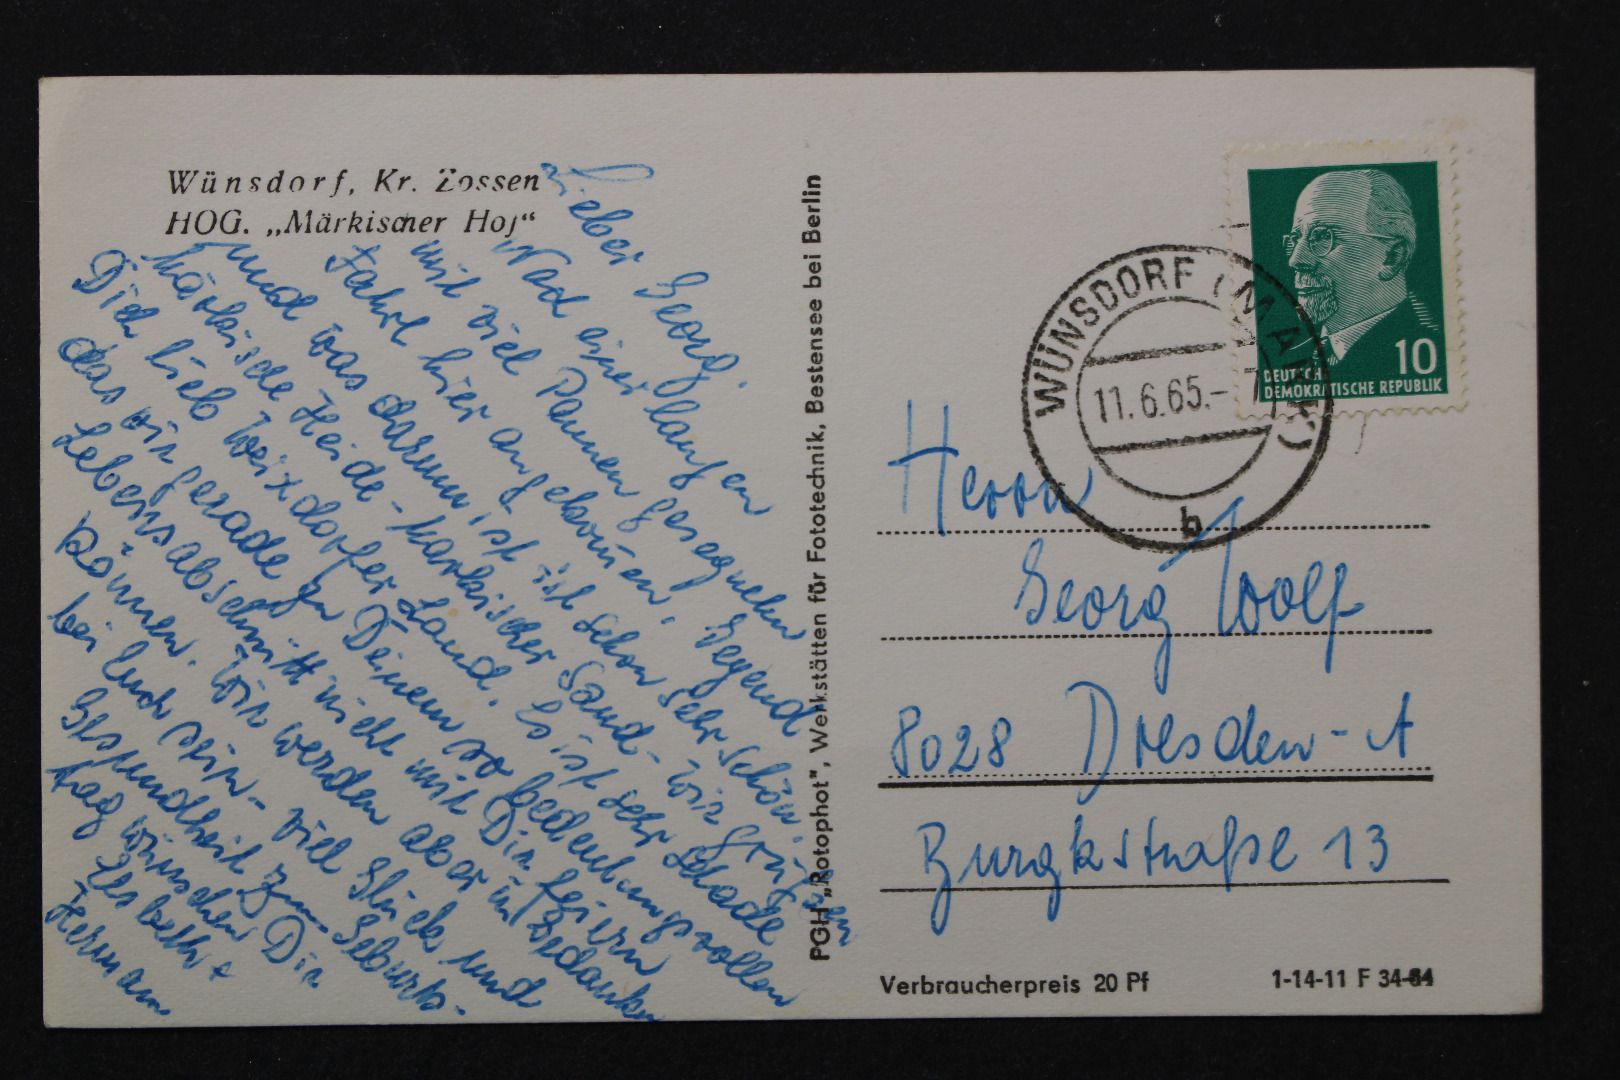 Wünsdorf, Kr. Zossen
HOG. „Märkischer Hof“
Lieber Georg,
Nach einer langen
Fahrt hier angekommen.
mit viel Pannen gesegneten
Gegend
und was darum ist ist schon sehr schön.
Märkische Heide - Märkischer Sand - wir grüßen
Dich lieb Weixdorfer Land. Es ist sehr schade
das wir gerade zu Deinem so bedeutungsvollen
Lebensabschnitt nicht mit Dir feiern
können. Wir werden aber in Gedanken
bei Euch sein - viel Glück und
Gesundheit zum Geburts-
tag wünschen Dir
Elsbeth +
Hermann
PGH „Rotophot“, Werkstätten für Fototechnik, Bestensee bei Berlin
10
DEUTSCHE
DEMOKRATISCHE REPUBLIK
WÜNSDORF (MARK)
11.6.65.-
b
Herrn
Georg Wolf
8028 Dresden-A
Burgkstraße 13
Verbraucherpreis 20 Pf
1-14-11 F 34-64